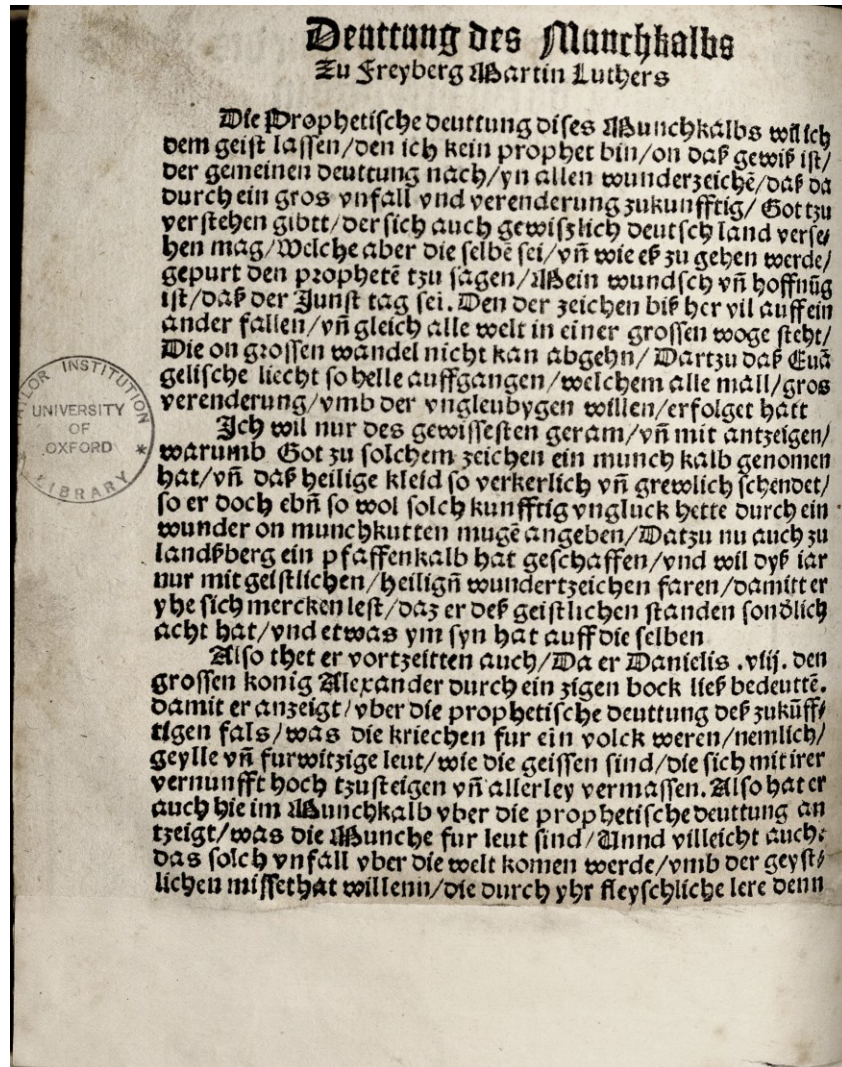 Deuttung des Munchkalbs
Zu Freyberg Martin Luthers
Die Prophetische deuttung dises Munchkalbs will ich
dem geist lassen/den ich kein prophet bin/on daß gewiß ist/
der gemeinen deuttung nach/yn allen wunderzeichē/daß da
durch ein gros vnfall vnd verenderung zukunfftig/ Got tzu
verstehen gibtt/der sich auch gewiszlich deutsch land verse⸗
hen mag/Welche aber die selbē sei/vn̄ wie eß zu gehen werde/
gepurt den prophetē tzu sagen/Mein wundsch vn̄ hoffnūg
ist/daß der Junst tag sei. Den der zeichen biß her vil auff ein
ander fallen/vn̄ gleich alle welt in einer grossen woge steht/
Die on grossen wandel nicht kan abgehn/ Dartzu daß Euā
gelische liecht so helle auffgangen/welchem alle mall/gros
verenderung/vmb der vngleubygen willen/erfolget hatt
Ich wil nur des gewissesten geram/vn̄ mit antzeigen/
warumb Got zu solchem zeichen ein munch kalb genomen
hat/vn̄ daß heilige kleid so verkerlich vn̄ grewlich schendet/
so er doch ebn̄ so wol solch kunfftig vngluck hette durch ein
wunder on munchkutten mugē angeben/Datzu nu auch zu
landßberg ein pfaffenkalb hat geschaffen/vnd wil dyß iar
nur mit geistlichen/heilign̄ wundertzeichen faren/damitt er
yhe sich mercken lest/daz er deß geistlichen standen sondlich
acht hat/vnd etwas ym syn hat auff die selben
Also thet er vortzeitten auch/Da er Danielis .viij. den
grossen konig Alexander durch ein zigen bock ließ bedeuttē.
damit er anzeigt/vber die prophetische deuttung deß zukūff⸗
tigen fals/was die kriechen fur ein volck weren/nemlich/
geylle vn̄ furwitzige leut/wie die geissen sind/die sich mit irer
vernunfft hoch tzusteigen vn̄ allerley vermassen. Also hat er
auch hie im Munchkalb vber die prophetische deuttung an
tzeigt/was die Munche fur leut sind/Unnd villeicht auch⸗
das solch vnfall vber die welt komen werde/vmb der geyst⸗
lichen missethat willenn/die durch yhr fleyschliche lere denn
TAYLOR INSTITUTION
UNIVERSITY
OF
OXFORD
LIBRARY